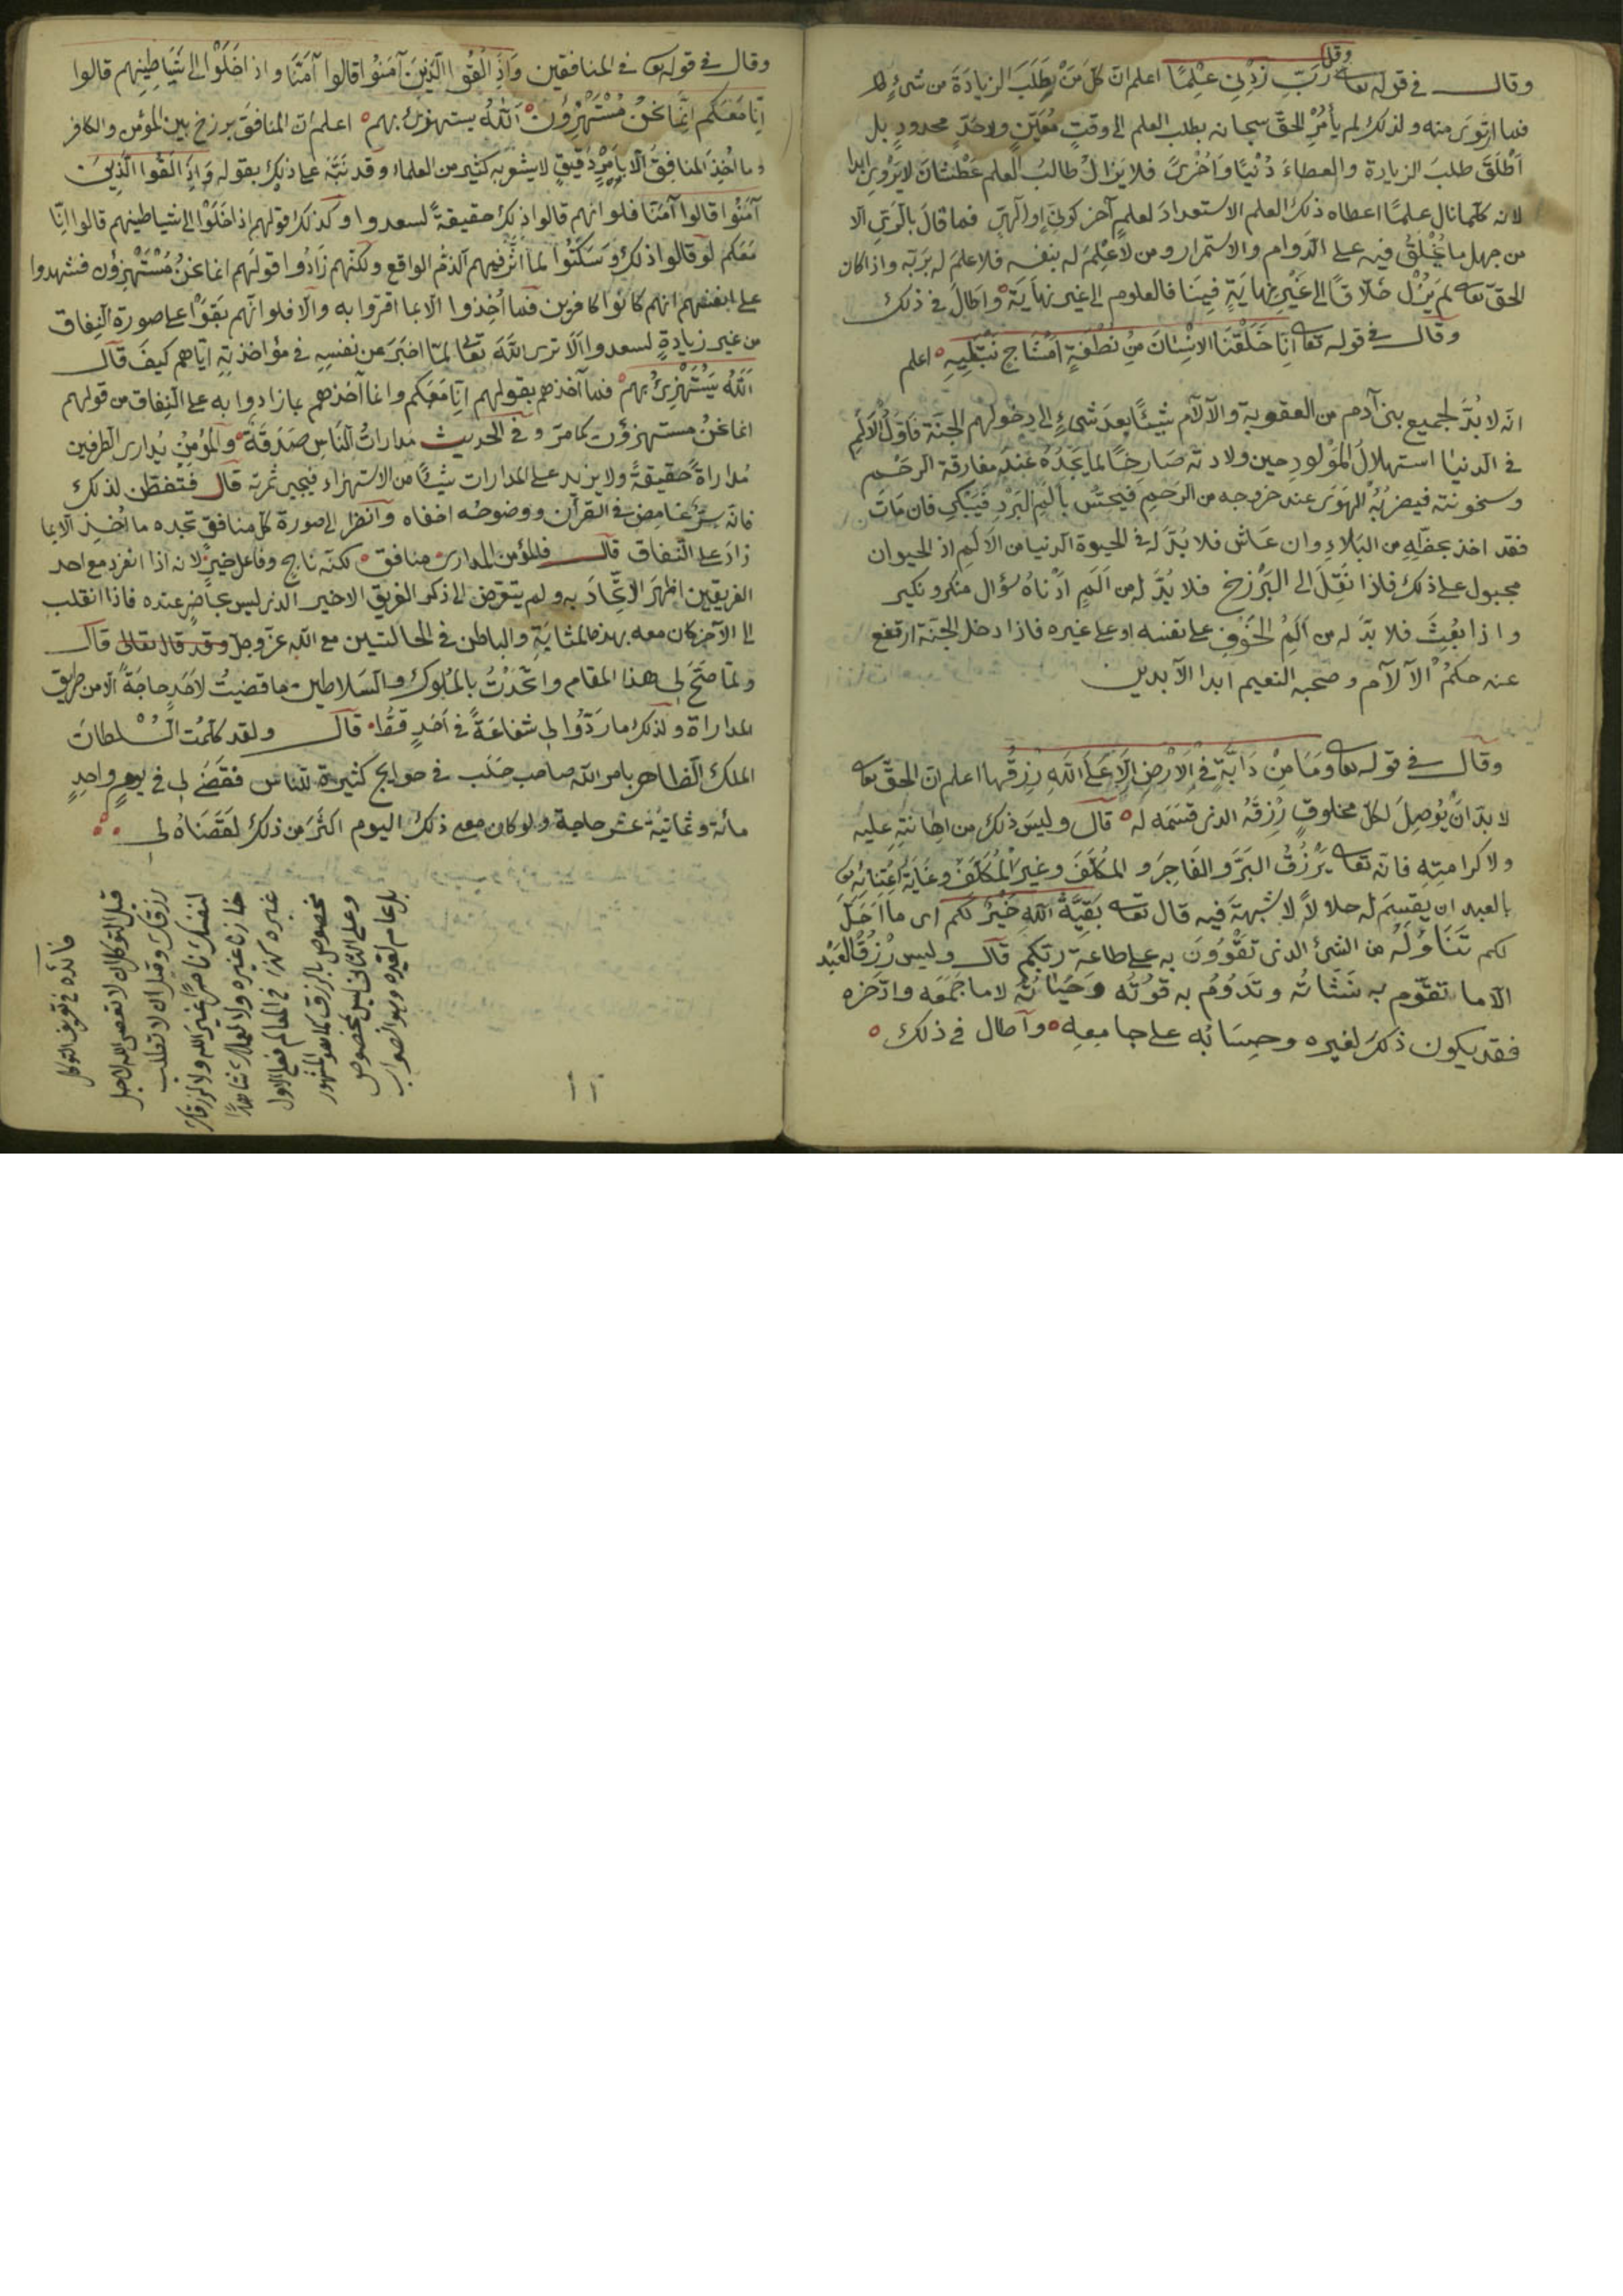 وقل
وقال في قوله تعا رَبِّ زِدْنِي عِلْمًا اعلم ان كلّ مَنْ طَلَبَ الزيادَةَ من شيءٍ
فما ارتَوَى منه ولذلك لم يأمُرِ الحقّ سبحانه بطلب العلم الى وقتٍ مُعَيّنٍ ولا حَدٍّ محدودٍ بل
أَطْلَقَ طلبَ الزيادة والعطاءَ دُنْيًا وَأُخْرىً فلا يَزَالُ طالبُ العلم عَطْشَانَ لا يَرْوِي ابدا
لانه كلّما نال علمًا اعطاه ذلك العلم الاستعدادَ لعلمٍ آخر كونيّ او الٓهيّ فما قالَ بالرّيّ الا
من جهل ما يُخْلَقُ فيه على الدّوام والاستمرار ومن لا عِلْمَ له بنفسه فلا علمَ له بربّه واذا كان
الحقّ تعا لم يَزَلْ خلّاقًا الى غَيْرِ نِهايَةٍ فِينَا فالعلوم الى غير نهايَة واطالَ في ذلك
وقال في قوله تعا اِنّا خَلَقْنَا الاِنْسَانَ مِنْ نُطْفَةٍ اَمْشَاجٍ نَبْتَلِيهِ اعلم
انه لا بُدَّ لجميع بني آدم من العقوبة والآلام شيئًا بعد شيءٍ الى دخولهم الجنّة فَاَوّلُ الاَلَمِ
في الدنيا استهلالُ المَوْلودِ حين ولادته صَارِخًا لما يَجِدُهُ عِنْدَ مفارقة الرحم
وسخونته فيضربُهُ الهَوَى عند خروجه من الرَحِم فيُحسّ بالَم البَرْدِ فَيَبْكي فان مَاتَ
فقد اخذ بحظّهِ من البَلاءِ وان عَاشَ فلا بُدَّ له في الحيوة الدنيا من الالَمِ اذِ الحيوان
مجبول على ذلك فاذا نُقِلَ الى البَرْزخ فلا بُدَّ له من اَلَمٍ اَدْناهُ سؤال منكر ونكير
واذا بُعِثَ فلا بدّ له من اَلَمِ الخَوْفِ على نفسه او على غيره فاذا دخل الجنّة ارتفع
عنه حكمُ الآلام وصَحِبَه النعيم ابدا الآبدين
وقال في قوله تعا وَمَا مِنْ دَابَّةٍ فِي الاَرْضِ اِلَّا عَلَى اللهِ رِزْقُها اعلم ان الحقّ تعا
لا بدّ اَنْ يُوصِلَ لكلّ مخلوقٍ رِزقَهُ الذي قسَمه له قال وليسَ ذلك من اِهانتِهِ عليه
ولا كرامتِهِ فانّه تعا يَرْزُقُ البَرَّ والفَاجِرَ والمُكَلّفَ وغيرَ المُكَلّفِ وغَايَةُ اعْتِنائِهِ
بالعبد ان يقسِمَ له حلالًا لا شبهةَ فيه قال تعا بَقِيَّةُ اللهِ خَيْرٌ لَكُم اى ما اَحَلَّ
لكم تَنَاوُلَهُ من الشئ الذي تَقْوَوْنَ به على طاعة ربّكم قال وليس رِزقُ العَبْد
الّا ما تَقَوّم به نَشْأتُه وتَدُومُ به قوّتُه وَحَيَاتُهُ لا ما جَمَعَه وادّخره
فقد يكون ذلك لغيره وحِسَابُه على جامِعِه واطال في ذلك
وقال في قوله تعا في المنافقين وَاِذَا لَقُوا الَّذِينَ آمَنُوا قالوا آمَنَّا واذا خَلَوْا الى شَيَاطِينِهِم قالوا
اِنّا مَعَكُم اِنَّمَا نَحْنُ مُسْتَهْزِؤُنَ اَللهُ يستهزئ بهم اعلم ان المنافقَ برزخ بين المؤمن والكافر
وما اُخِذَ المنافق الا بِاَمْرٍ دقيقٍ لا يشعر به كثير من العلماء وقد نَبّهَ على ذلك بقوله وَاِذَا لَقُوا الَّذِينَ
آمَنُوا قالوا آمَنّا فلو انهم قالوا ذلك حقيقةً لسعدوا وكذلك قولهم اذا خَلَوْا الى شياطينهم قالوا انّا
مَعَكم لو قالوا ذلك وَسَكَتُوا لما اثّر فيهم الذمّ الواقع ولكنّهم زَادُوا قولَهم انما نحنُ مُسْتَهْزِؤُن فشهدوا
على انفسهم انهم كانُوا كافرين فما اُخِذوا الا بما اقرّوا به والّا فلو انّهم بَقَوْا على صورة النِفاق
من غير زيادةٍ لسعدوا اَلا ترى اللهَ تعا لمّا اخبَرَ عن نفسِهِ في مؤاخذتِهِ ايّاهم كيفَ قال
اَللهُ يَسْتَهْزِئُ بِهِمْ فما آخذهم بقولهم اِنّا مَعَكم وانما آخذهم بما زادوا به على النِفاق من قولهم
انما نحنُ مستهزؤن كما مرّ وفي الحديث مُدارَاتُ النّاسِ صَدَقَة والمُؤمِنُ يُدارى الطرفين
مُداراةً حقيقةً ولا يزيد على المدارات شيئًا من الاستهزاء فيجنى ثمرته قال فتفطّن لذلك
فانّه سِرٌّ غامِض في القرآن ووضوحُه اخفاه وانظر الى صورة كلّ منافقٍ تجده ما اُخِذ الّا بما
زادَ على النّفاق قال فالمؤمن المداري منافق لكنّه ناجٍ وفاعل خيرٍ لانه اذا انفرد مع احد
الفريقين اظهرَ الاتّحادَ به ولم يتعرّض الى ذكر الفريق الاخير الذي ليس بحاضرٍ عنده فاذا انقلب
الى الآخر كان معه بهذه المثابَةِ والباطن في الحالتين مع الله عزّ وجلّ وقد قال تعالى قال
ولمّا صَحّ لي هذا المقام واتّحَدْتُ بالمُلوك والسلاطين ما قضيتُ لاَحَدٍ حاجَةً الّا من طريق
المداراة ولذلك ما رَدّوا لي شفاعَةً في اَحَدٍ قَطُّ قال ولقد كلّمتُ السّلطانَ
الملك الظاهر بامر الله صاحب حَلَب في حوايج كثيرة للناس فقَضَى لي في يومٍ واحِدٍ
مائة وثمانيَة عشر حاجة ولو كان معى ذلك اليوم اكثَرَ من ذلك لقَضَاهُ لي
فائده في تعريف التوكل
قيل التوكل ان لا تعصى الله لاجل
رزقك وقيل ان لا تطلب
لنفسك ناصرًا غير الله ولا لرزقك
خازنا غيره ولا لعملك شاهدًا
غيره كذا في المعالم فعلى الاول
مخصوص بالرزق كما هو المشهور
وعلى الثاني ليس بمخصوص
بل عام لغيره وهو الصواب